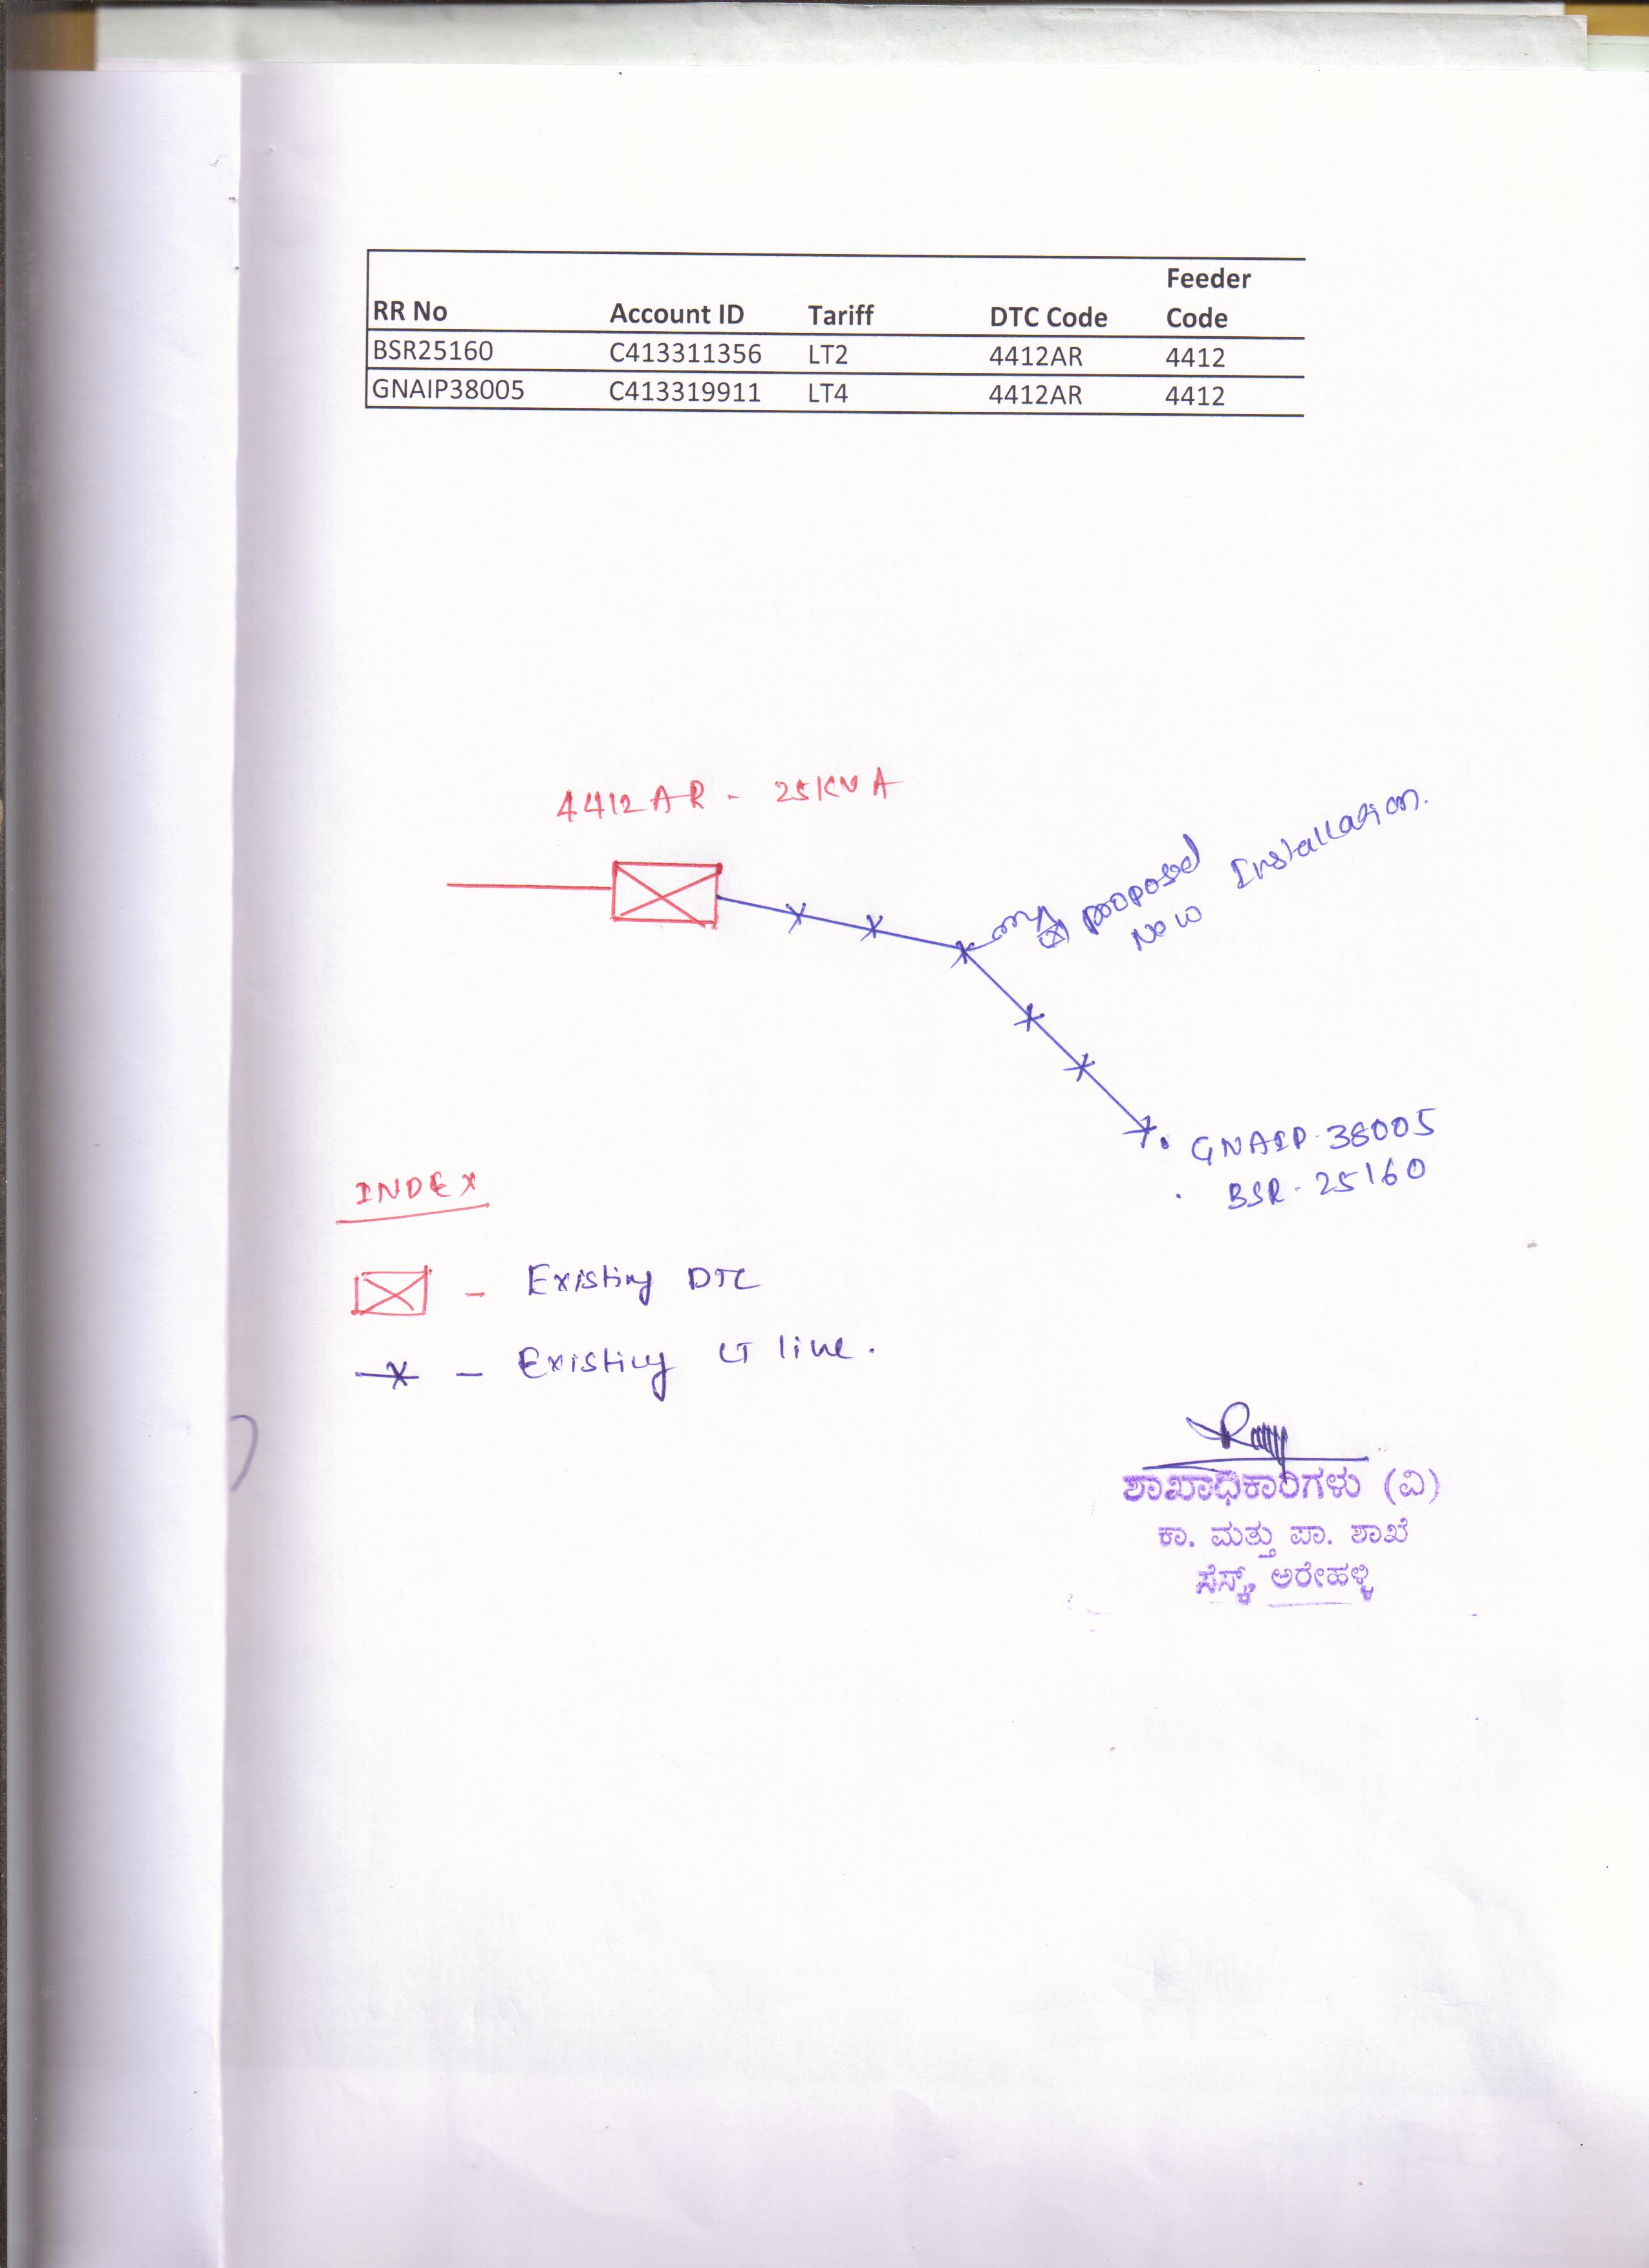 Feeder
RR No Account ID Tariff DTC Code Code
BSR25160 C413311356 LT2 4412AR 4412
GNAIP38005 C413319911 LT4 4412AR 4412
4412AR - 25KVA
proposed
New Installation.
GNAIP-38005
BSR-25160
INDEX
- Existing DTC
- Existing LT line.
ಶಾಖಾಧಿಕಾರಿಗಳು (ವಿ)
ಕಾ. ಮತ್ತು ಪಾ. ಶಾಖೆ
ಸೆಸ್ಕ್, ಅರೇಹಳ್ಳಿ